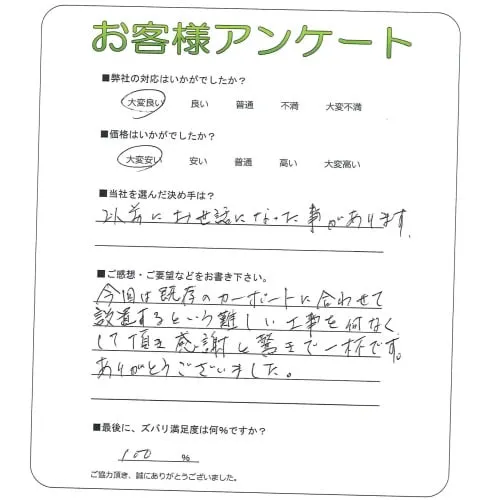 お客様アンケート
■弊社の対応はいかがでしたか?
大変良い 良い 普通 不満 大変不満
■価格はいかがでしたか?
大変安い 安い 普通 高い 大変高い
■当社を選んだ決め手は?
以前にお世話になった事があります.
■ご感想・ご要望などをお書き下さい。
今回は既存のカーポートに合わせて
設置するという難しい工事を何なく
して頂き感謝と驚きで一杯です。
ありがとうございました。
■最後に、ズバリ満足度は何%ですか?
100 %
ご協力頂き、誠にありがとうございました。